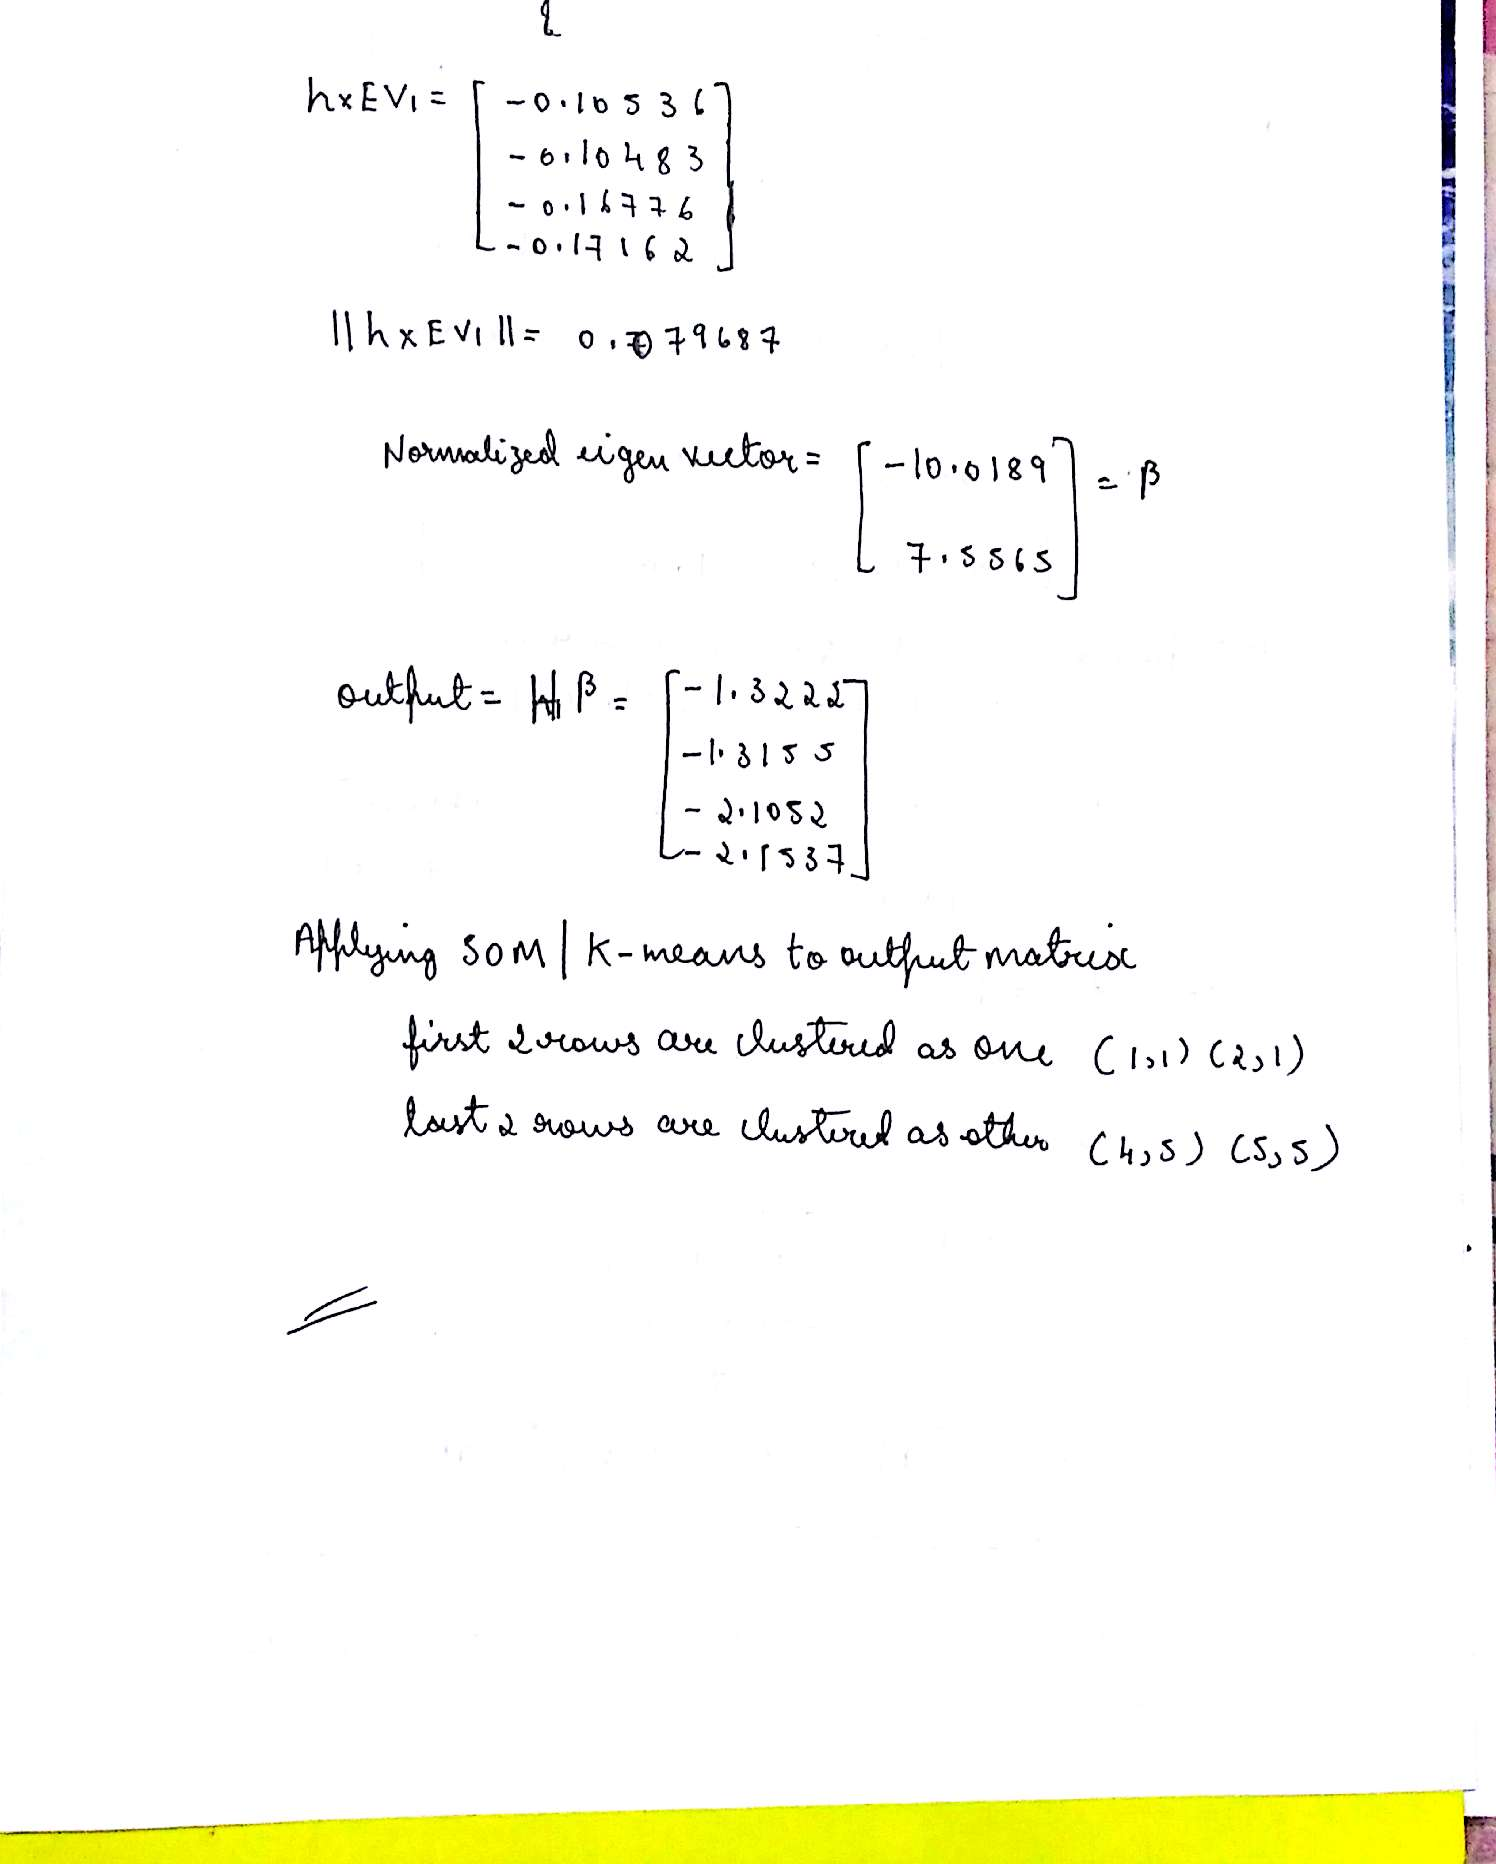 h×EV₁ = [ -0.10536
-0.10483
-0.16776
-0.17162 ]
||h×EV₁|| = 0.079687
Normalized eigen vector = [ -10.0189
7.5565 ] = β
output = H β = [ -1.3222
-1.3155
-2.1052
-2.1537 ]
Applying SOM | K-means to output matrix
first 2 rows are clustered as one (1,1) (2,1)
last 2 rows are clustered as other (4,5) (5,5)